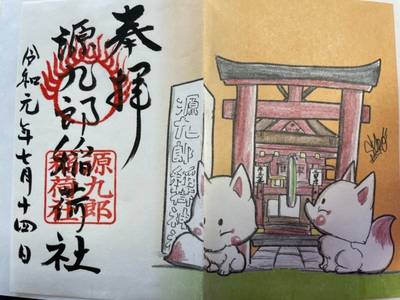 奉拝
源九郎稲荷神社
令和元年七月十四日
源九郎
稲荷社
源九郎稲荷神社